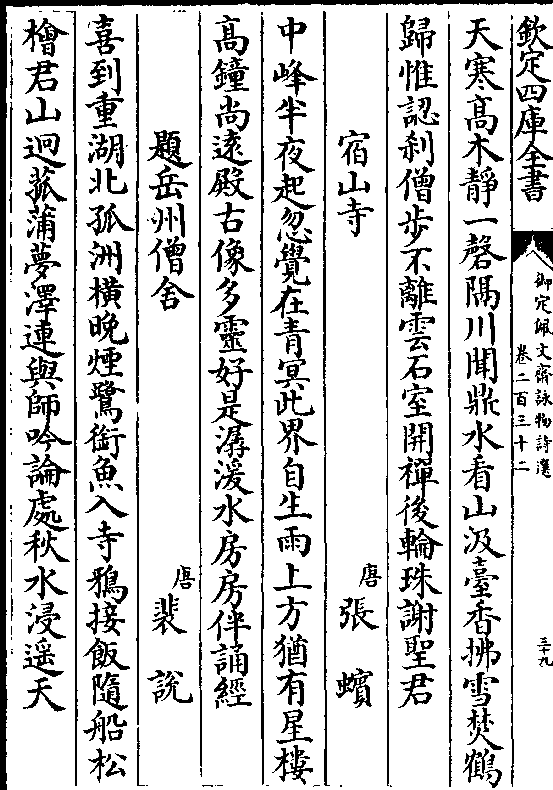 欽定四庫全書
御定佩文齋詠物詩選
卷二百三十二
三十九
天寒高木靜一磬隔川聞鼎水看山汲臺香拂雪焚鶴
歸惟認刹僧步不離雲石室開禪後輪珠謝聖君
宿山寺
唐張蠙
中峰半夜起忽覺在青冥此界自生雨上方猶有星樓
高鐘尚遠殿古像多靈好是潺湲水房房伴誦經
題岳州僧舍
唐裴說
喜到重湖北孤洲橫晚煙鷺銜魚入寺鴉接飯隨船松
檜君山迥菰蒲夢澤連與師吟論處秋水浸遥天